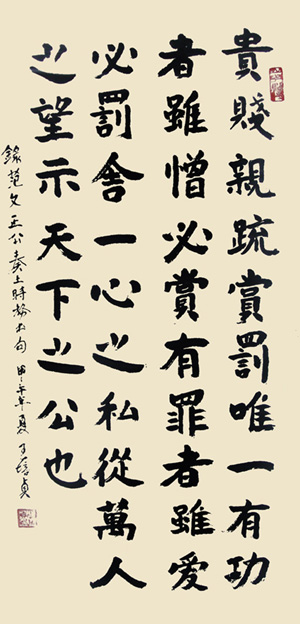 貴賤親疏賞罰唯一有功
者雖憎必賞有罪者雖愛
必罰舍一心之私從萬人
之望示天下之公也
錄范文正公奏上時務書句 甲午年夏 培貞